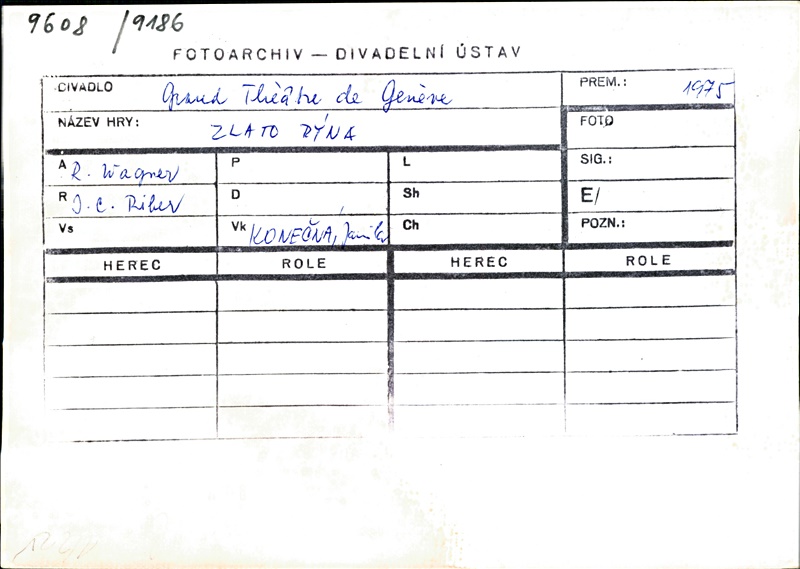 9608 / 9186
FOTOARCHIV — DIVADELNÍ ÚSTAV
DIVADLO Grand Théâtre de Genève PREM.: 1975
NÁZEV HRY: ZLATO RÝNA FOTO
A R. Wagner P L SIG.:
R J. C. Riber D Sh E/
Vs Vk KONEČNÁ, Jamila Ch POZN.:
HEREC ROLE HEREC ROLE